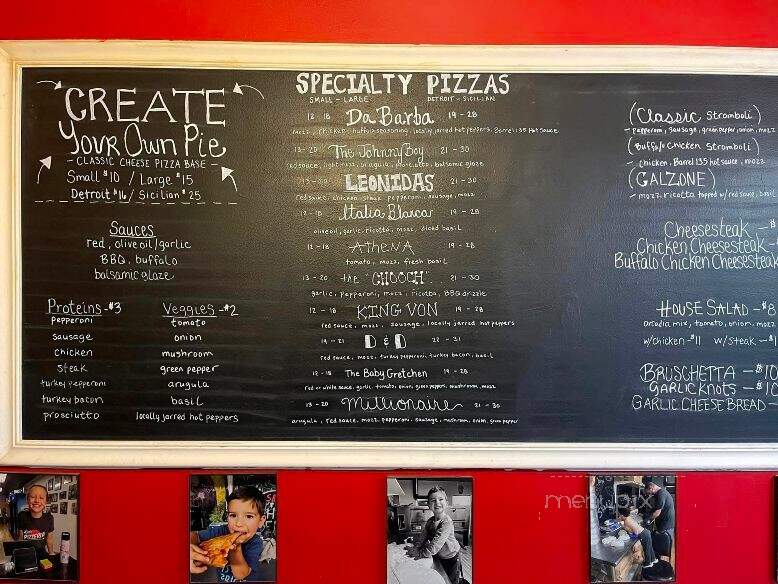 CREATE
Your Own Pie
- CLASSIC CHEESE PIZZA BASE -
Small $10 / Large $15
Detroit $16 / Sicilian $25
Sauces
red, olive oil/garlic
BBQ, buffalo
balsamic glaze
Proteins -$3
pepperoni
sausage
chicken
steak
turkey pepperoni
turkey bacon
prosciutto
Veggies -$2
tomato
onion
mushroom
green pepper
arugula
basil
locally jarred hot peppers
SPECIALTY PIZZAS
SMALL - LARGE DETROIT - SICILIAN
12 - 18 Da Barba 19 - 28
mozz, chicken, buffalo seasoning, locally jarred hot peppers, Barrel 135 hot sauce
13 - 20 The Johnny Boy 21 - 30
red sauce, light mozz, arugula, prosciutto, balsamic glaze
13 - 20 LEONIDAS 21 - 30
red sauce, chicken, steak, pepperoni, sausage, mozz
12 - 18 Italia Blanca 19 - 28
olive oil, garlic, ricotta, mozz, sliced basil
12 - 18 ATHENA 19 - 28
tomato, mozz, fresh basil
13 - 20 the "CHOOCH" 21 - 30
garlic, pepperoni, mozz, ricotta, BBQ drizzle
12 - 18 KING VON 19 - 28
red sauce, mozz, sausage, locally jarred hot peppers
14 - 21 D & D 22 - 31
red sauce, mozz, turkey pepperoni, turkey bacon, basil
12 - 18 The Baby Gretchen 19 - 28
red or white sauce, garlic, tomato, onion, green peppers, mushroom, mozz
13 - 20 Millionaire 21 - 30
arugula, red sauce, mozz, pepperoni, sausage, mushroom, onion, green pepper
(Classic Stromboli)
- pepperoni, sausage, green pepper, onion, mozz
(Buffalo Chicken Stromboli)
- chicken, Barrel 135 hot sauce, mozz
(GALZONE)
- mozz, ricotta topped w/ red sauce, basil
Cheesesteak - $
Chicken Cheesesteak -
Buffalo Chicken Cheesesteak
HOUSE SALAD - $8
arcadia mix, tomato, onion, mozz
w/chicken - $11 w/steak - $1
BRUSCHETTA - $10
GARLIC KNOTS - $10
GARLIC CHEESE BREAD -
menupix